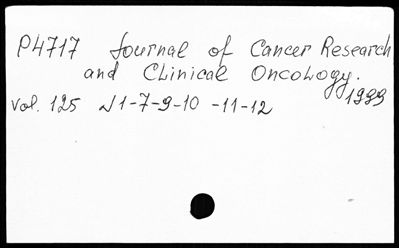 P4717 Journal of Cancer Research
and Clinical Oncology.
1999
vol. 125 N 1-7-9-10 -11-12